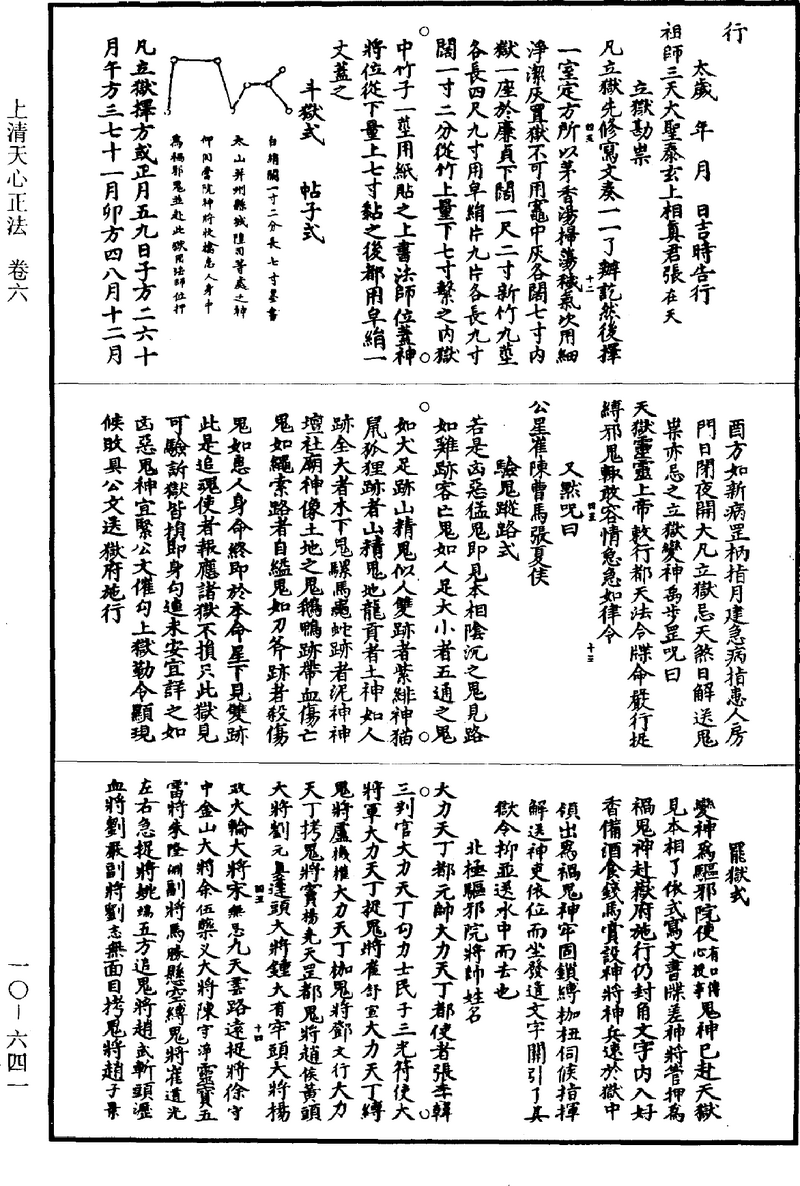 上清天心正法　卷六
一〇－六四一
行
太歲　年　月　日吉時告行
祖師三天大聖泰玄上相真君張在天
立獄勘祟
凡立獄先修寫文奏一一了辦訖然後擇
一室定方所以茅香湯掃蕩穢氣次用細
淨潔灰置獄不可用竈中灰各闊七寸內
獄一座於廉貞下闊一尺二寸新竹九莖
各長四尺九寸用皁絹片九片各長九寸
闊一寸二分從竹上量下七寸繫之內獄
中竹子一莖用紙貼之上書法師位蓋神
將位從下量上七寸黏之後都用皁絹一
丈蓋之
斗獄式　帖子式
白絹闊一寸二分長七寸墨書
太山并州縣城隍司等處之神
仰同當院神將收擒患人身中
為禍邪鬼並赴此獄用法師位押
凡立獄擇方或正月五九日子方二六十
月午方三七十一月卯方四八月十二月
酉方如新病罡柄指月建急病指患人房
門日閉夜開大凡立獄忌天煞日解送鬼
祟亦忌之立獄變神禹步罡呪曰
天獄靈靈上帝敕行都天法令牒命嚴行捉
縛邪鬼輒敢容情急急如律令
又默呪曰
公星崔陳曹馬張夏侯
驗鬼蹤路式
若是凶惡猛鬼即見本相陰沉之鬼見路
如雞跡客亡鬼如人足大小者五通之鬼
如犬足跡山精鬼似人雙跡者紫緋神猫
鼠狐狸跡者山精鬼地龍貢者土神如人
跡全大者木下鬼騾馬龜蛇跡者泥神神
壇社廟神像土地之鬼鵝鴨跡帶血傷亡
鬼如繩索路者自縊鬼如刀斧跡者殺傷
鬼如患人身命終即於本命星下見雙跡
此是追魂使者報應諸獄不損只此獄見
可驗訴獄皆損即身勾遣未安宜詳之如
凶惡鬼神宜緊公文催勾上獄勒令顯現
候敗具公文送獄府施行
罷獄式
變神為驅邪院使有口傳心授事鬼神已赴天獄
見本相了依式寫文書牒差神將管押為
禍鬼神赴獄府施行仍封角文字內入好
香備酒食錢馬賞設神將神兵速於獄中
領出為禍鬼神牢固鎖縛枷杻伺候指揮
解送神吏依位而坐發遣文字開引了具
獄令抑並送水中而去也
北極驅邪院將帥姓名
大力天丁都元帥大力天丁都使者張李韓
三判官大力天丁勾力士民子三光符使大
將軍大力天丁捉鬼將崔舒宣大力天丁縛
鬼將盧機權大力天丁枷鬼將鄧文行大力
天丁拷鬼將竇楊先天罡都鬼將趙侯黃頭
大將劉元真蓬頭大將鍾大有牢頭大將楊
政火輪大將宋無忌九天雲路遠捉將徐守
中金山大將余伍藥义大將陳守淨靈寶五
雷將朱隆淵副將馬勝懸空縛鬼將崔道光
左右急捉將姚端五方追鬼將趙武斬頭瀝
血將劉嚴副將劉志無面目拷鬼將趙子景